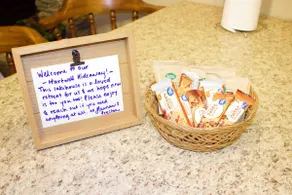 Welcome to our
~ Hartwell Hideaway! ~
This lakehouse is a loved
retreat for us & we hope now
is for you too! Please enjoy
& reach out if you need
anything at all.